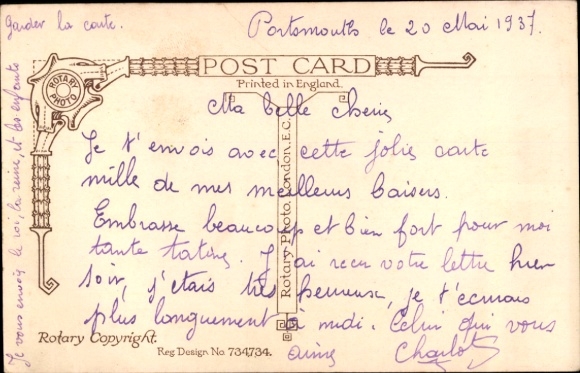 Garder la carte.
Portsmouth le 20 Mai 1937.
POST CARD
Printed in England.
ROTARY PHOTO
Ma belle cherie
Je t'envois avec cette jolie carte
mille de mes meilleurs baisers.
Embrasse beaucoup et bien fort pour moi
tante tatine. J'ai recu votre lettre hier
soir, j'etais très heureuse, je t'ecrirais
plus longuement à midi. Celui qui vous
aime Charlot
Je vous envoie le roi, la reine, et les enfants
Rotary Photo, London, E.C.
Rotary Copyright.
Reg Design No 734,734.